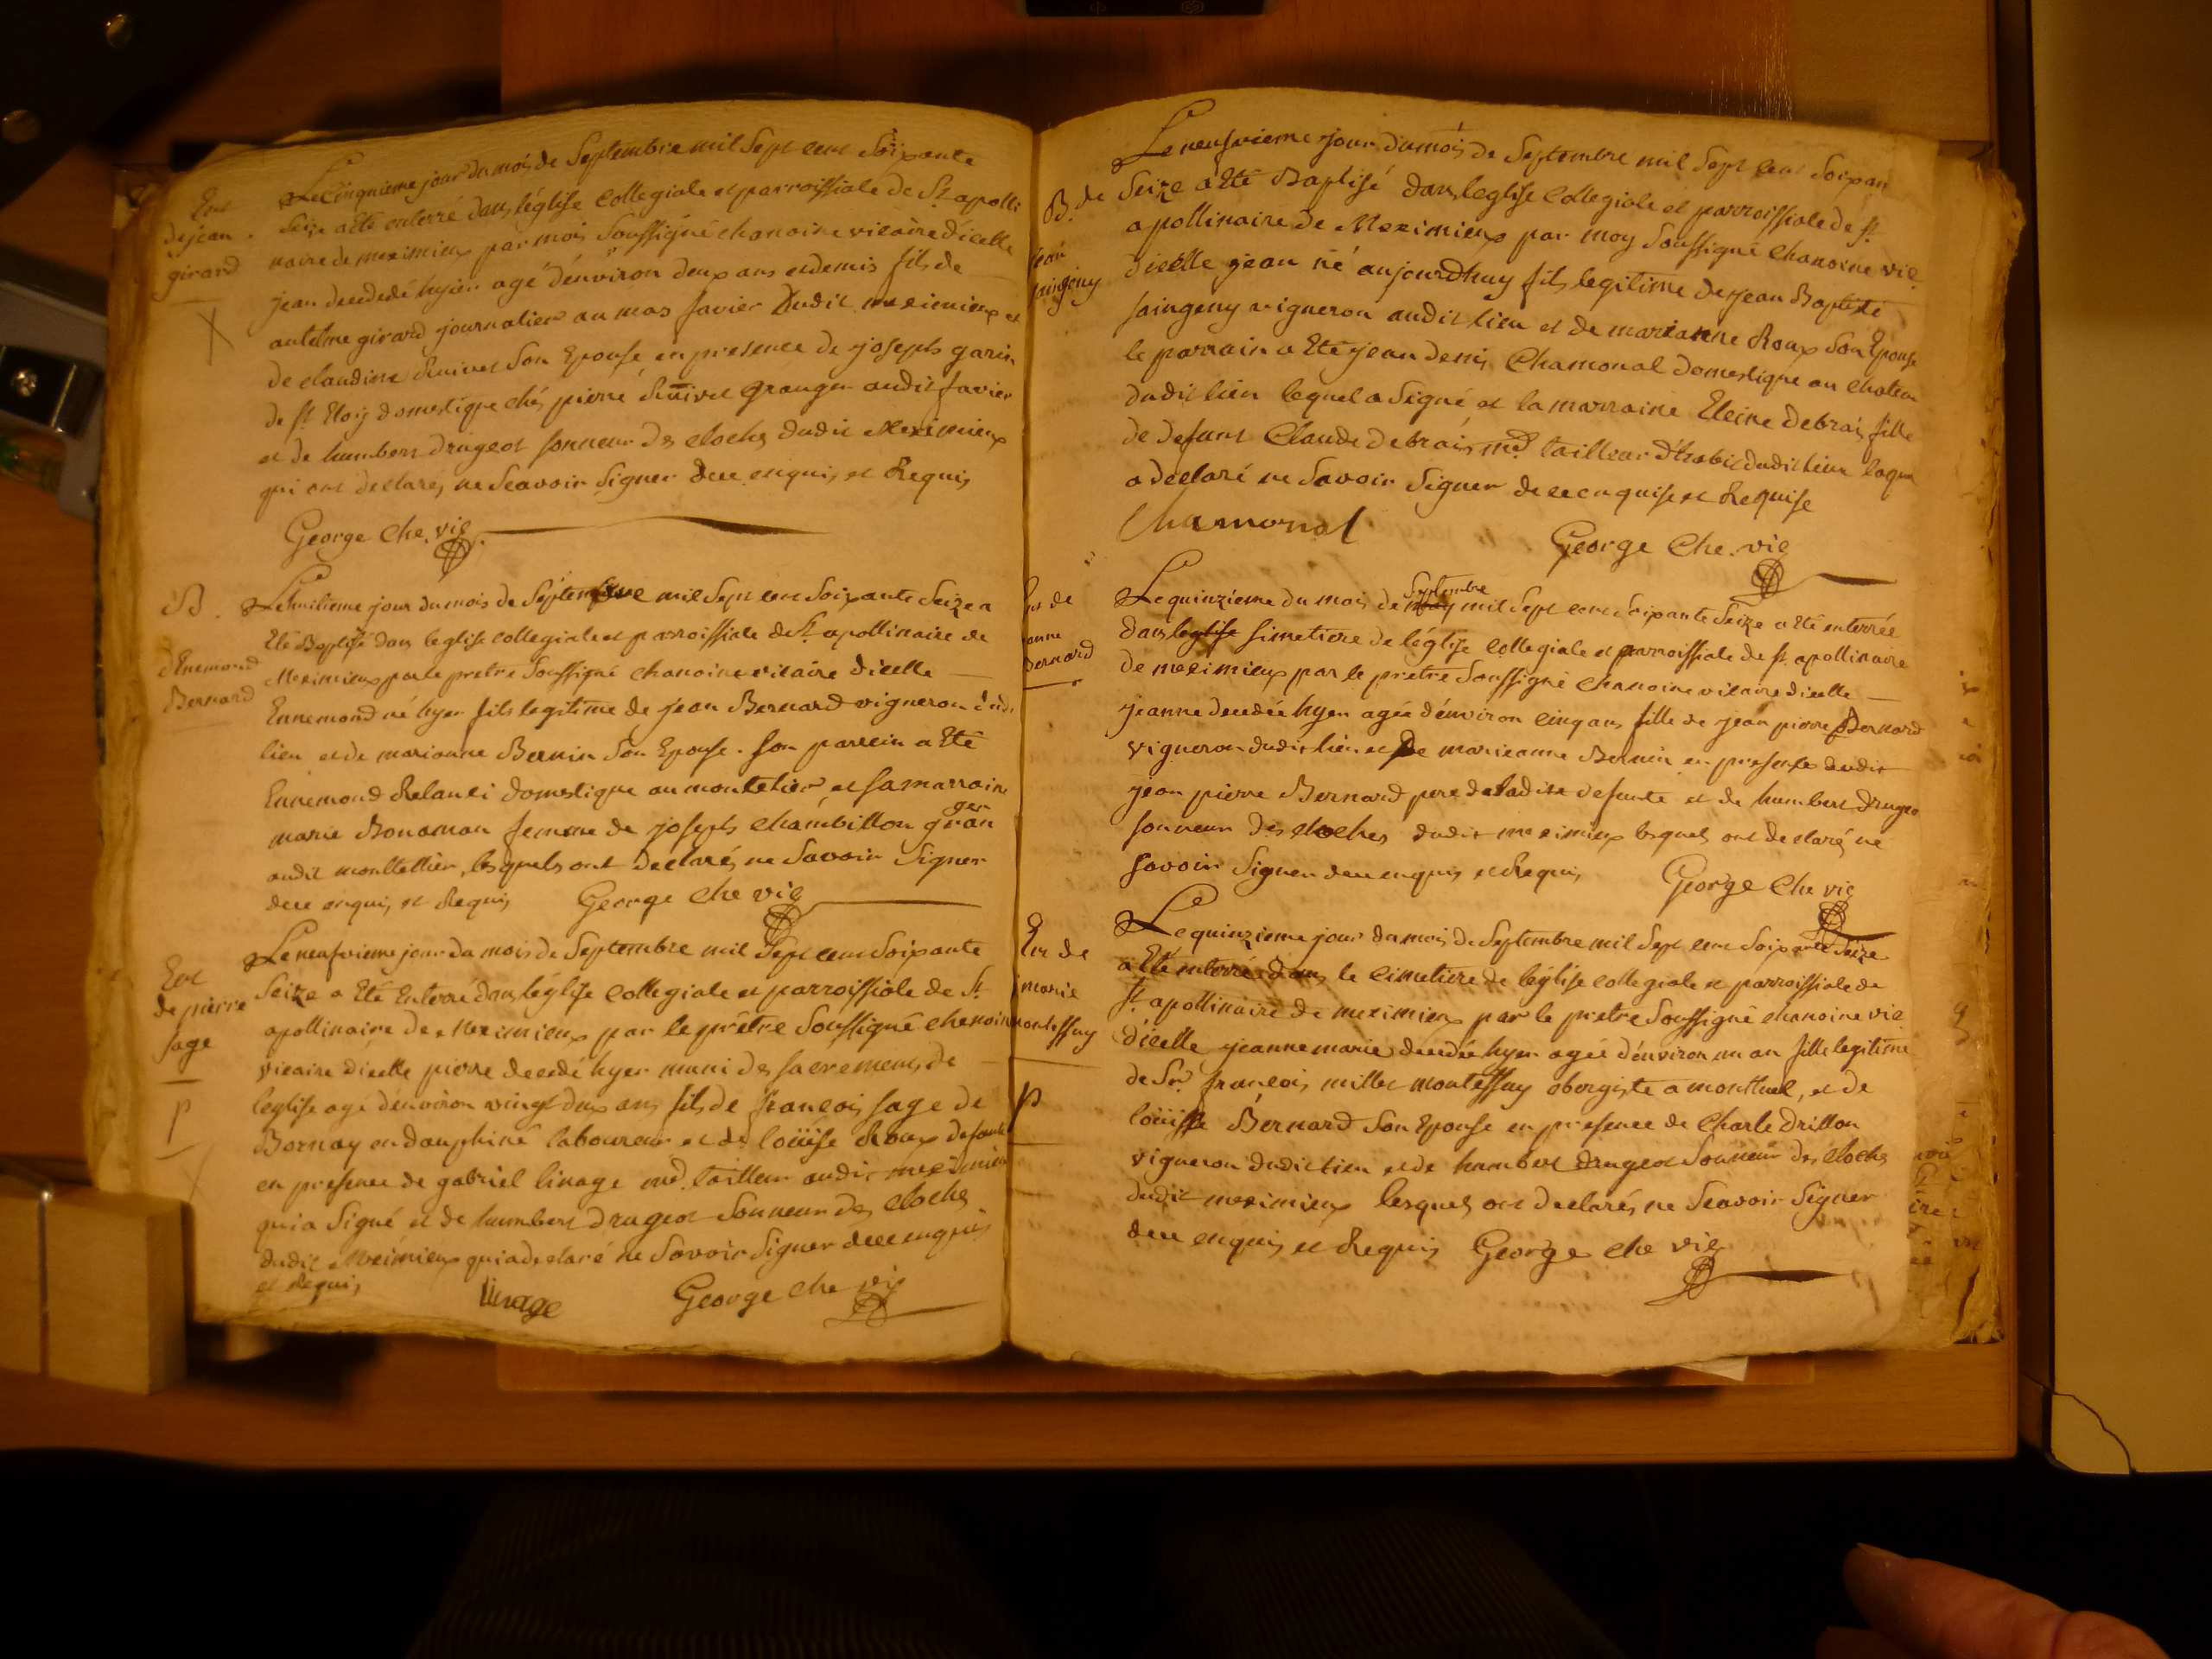 Ent
de jean
girard
Le Cinquieme jour du mois de Septembre mil Sept cent Soixante
Seize a Eté enterré dans l'église Collegiale et parroissiale de St. apolli
naire de meximieux par mois Soussigné chanoine vicaire d'icelle
jean decededé hyier agé d'environ deux ans et demis fils de
antelme girard journalier au mas favier dudit meximieux et
de claudine Ruivet Son Epouse en presence de joseph garin
de St. Eloy domestique chés pierre Ruivet granger audit favier
et de humbert drugeot sonneur des cloches dudit Meximieux
qui ont declarés ne Scavoir Signer de ce enquis et Requis
George Che. vic
B.
d'Enemond
Bernard
Le huitieme jour du mois de Septembre mil Sept cent Soixante Seize a
Eté Baptisé dans leglise collegiale et parroissiale de St. apollinaire de
Meximieux par le pretre Soussigné chanoine vicaire d'icelle
Ennemond né hyer fils legitime de jean Bernard vigneron dud.
lieu et de marianne Bernin Son Epouse. son parrein a Eté
Ennemond Relanci domestique au montelier et sa marraine
marie Bonaman femme de joseph chambillon gran
ger
audit montellier, lesquels ont declarés ne Savoir Signer
de ce enquis et Requis George che vic
Ent
de pierre
sage
P
Le neufvieme jour du mois de Septembre mil Sept cent Soixante
Seize a Eté Enterré dans l'église Collegiale et parroissiale de St.
apollinaire de Meximieux par le prêtre Soussigné chanoin
vicaire d'icelle pierre decedé hyer muni des sacremens de
leglise agé d'environ vingt deux ans fils de francois sage de
Bornay en dauphiné laboureur et de loüise Roux defunte
en presence de gabriel linage md. tailleur audit meximieu
qui a Signé et de humbert drugeot Sonneur des cloches
dudit Meximieux qui a declaré ne Savoir Signer de ce enquis
et Requis
linage George che vic
B. de
jean
saingeny
Le neufvieme jour du mois de Septembre mil Sept cent Soixan
Seize a Eté Baptisé dans leglise Collegiale et parroissiale de St.
apollinaire de Meximieux par moy Soussigné Chanoine vic
d'icelle jean né aujourdhuy fils legitime de jean Baptiste
saingeny vigneron audit lieu et de marianne Roux Son Epouse
le parrain a Eté jean denis Chamonal domestique au chateau
dudit lieu lequel a Signé et la marraine Eleine debrais fille
de defunt Claude debrais md. tailleur d'habit dudit lieu laque
a declaré ne Savoir Signer de ce enquise et Requise
Chamonal George Che. vic
Ent de
janne
Bernard
Le quinzieme du mois de may Septembre mil Sept cent Soixante Seize a Eté enterrée
dans leglise simetiere de l'église collegiale et parroissiale de St. apollinaire
de meximieux par le prietre Soussigné chanoine vicaire d'icelle
jeanne decedée hyer agée d'environ cinq ans fille de jean pierre Bernard
vigneron dudit lieu et de marieanne Bernin en presence dudit
jean pierre Bernard pere de ladite defunte et de humbert drugeo
sonneur des cloches dudit meximieux lesquels ont declaré ne
savoir Signer de ce enquis et Requis George Che vic
Ent de
marie
montessuy
P
Le quinzieme jour du mois de Septembre mil Sept cent Soixante Seize
a Eté enterré dans le Cimetiere de l'église collegiale et parroissiale de
St. apollinaire de meximieux par le pretre Soussigné chanoine vic
d'icelle jeanne marie decedée hyer agée d'environ un an fille legitime
de Sr. francois millet montessuy obergiste a montluel, et de
loüisse Bernard Son Epouse en presence de Charle drillon
vigneron dudit lieu et de humbert drugeot Sonneur des cloches
dudit meximieux lesquels ont declarés ne Scavoir Signer
de ce enquis et Requis George che vic